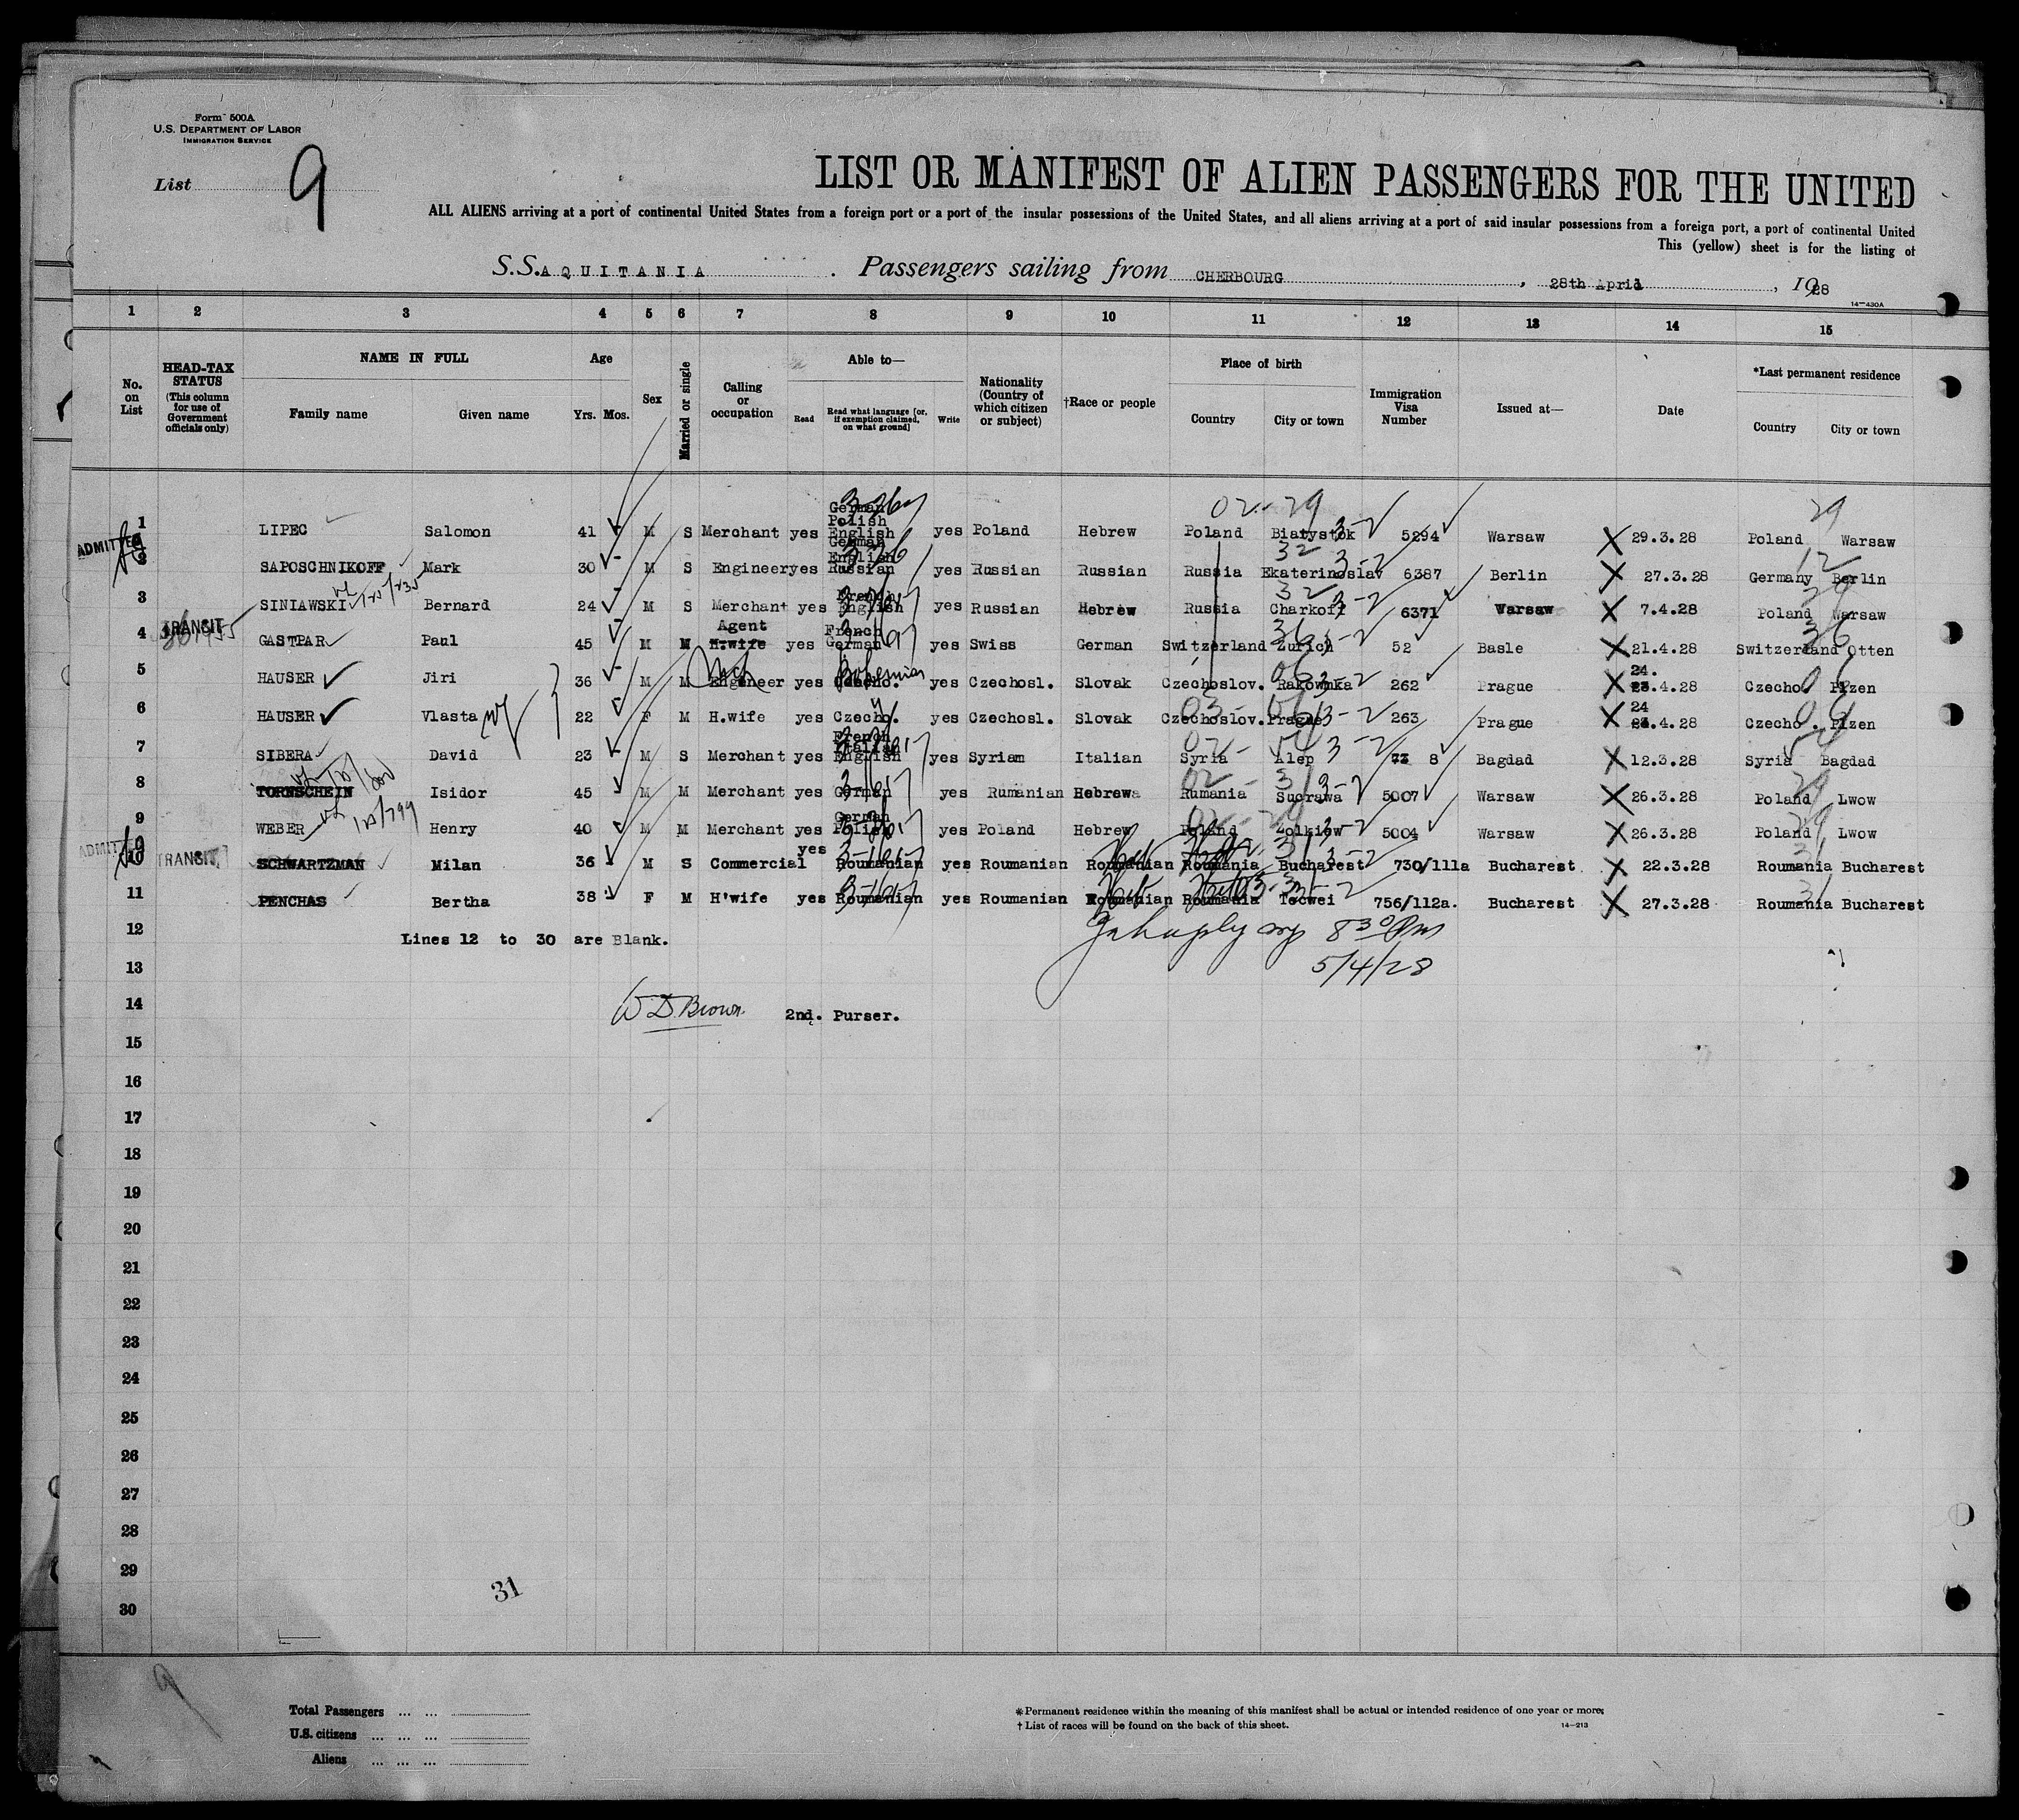 Form 500A
U.S. DEPARTMENT OF LABOR
IMMIGRATION SERVICE
List 9
LIST OR MANIFEST OF ALIEN PASSENGERS FOR THE UNITED
ALL ALIENS arriving at a port of continental United States from a foreign port or a port of the insular possessions of the United States, and all aliens arriving at a port of said insular possessions from a foreign port, a port of continental United
This (yellow) sheet is for the listing of
S.S. AQUITANIA . Passengers sailing from CHERBOURG , 28th April , 1928
14—430A
1 2 3 4 5 6 7 8 9 10 11 12 13 14 15
No. on List
HEAD-TAX STATUS (This column for use of Government officials only)
NAME IN FULL
Family name Given name
Age
Yrs. Mos.
Sex
Married or single
Calling or occupation
Able to—
Read Read what language [or, if exemption claimed, on what ground] Write
Nationality (Country of which citizen or subject)
†Race or people
Place of birth
Country City or town
Immigration Visa Number
Issued at—
Date
*Last permanent residence
Country City or town
1 LIPEC Salomon 41 M S Merchant yes German Polish English yes Poland Hebrew Poland Biatystok 5294 Warsaw 29.3.28 Poland Warsaw
ADMITTED
2 SAPOSCHNIKOFF Mark 30 M S Engineer yes German English Russian yes Russian Russian Russia Ekaterinoslav 6387 Berlin 27.3.28 Germany Berlin
3 SINIAWSKI Bernard 24 M S Merchant yes French English yes Russian Hebrew Russia Charkoff 6371 Warsaw 7.4.28 Poland Warsaw
TRANSIT
4 GASTPAR Paul 45 M M Agent H.wife yes French German yes Swiss German Switzerland Zurich 52 Basle 21.4.28 Switzerland Otten
5 HAUSER Jiri 36 M M Engeneer yes Bohemian Czecho. yes Czechosl. Slovak Czechoslov. Rakownka 262 Prague 24.4.28 Czecho. Plzen
6 HAUSER Vlasta 22 F M H.wife yes Czecho. yes Czechosl. Slovak Czechoslov. Prague 263 Prague 24.4.28 Czecho. Plzen
7 SIBERA David 23 M S Merchant yes French Italian English yes Syrian Italian Syria Alep 73 8 Bagdad 12.3.28 Syria Bagdad
8 TORNSCHEIN Isidor 45 M M Merchant yes German yes Rumanian Hebrew Rumania Sucrawa 5007 Warsaw 26.3.28 Poland Lwow
9 WEBER Henry 40 M M Merchant yes German Polish yes Poland Hebrew Poland Zolkiew 5004 Warsaw 26.3.28 Poland Lwow
ADMITTED TRANSIT
10 SCHWARTZMAN Milan 36 M S Commercial yes Roumanian yes Roumanian Roumanian Roumania Bucharest 730/111a Bucharest 22.3.28 Roumania Bucharest
11 PENCHAS Bertha 38 F M H'wife yes Roumanian yes Roumanian Roumanian Roumania Tecwei 756/112a. Bucharest 27.3.28 Roumania Bucharest
12 Lines 12 to 30 are Blank.
8 30 Pm
13 5/4/28
14 W D Brown 2nd. Purser.
15
16
17
18
19
20
21
22
23
24
25
26
27
28
29
31
30
9
Total Passengers ... ...
U.S. citizens ... ... ...
Aliens ... ... ...
*Permanent residence within the meaning of this manifest shall be actual or intended residence of one year or more.
†List of races will be found on the back of this sheet.
14—213